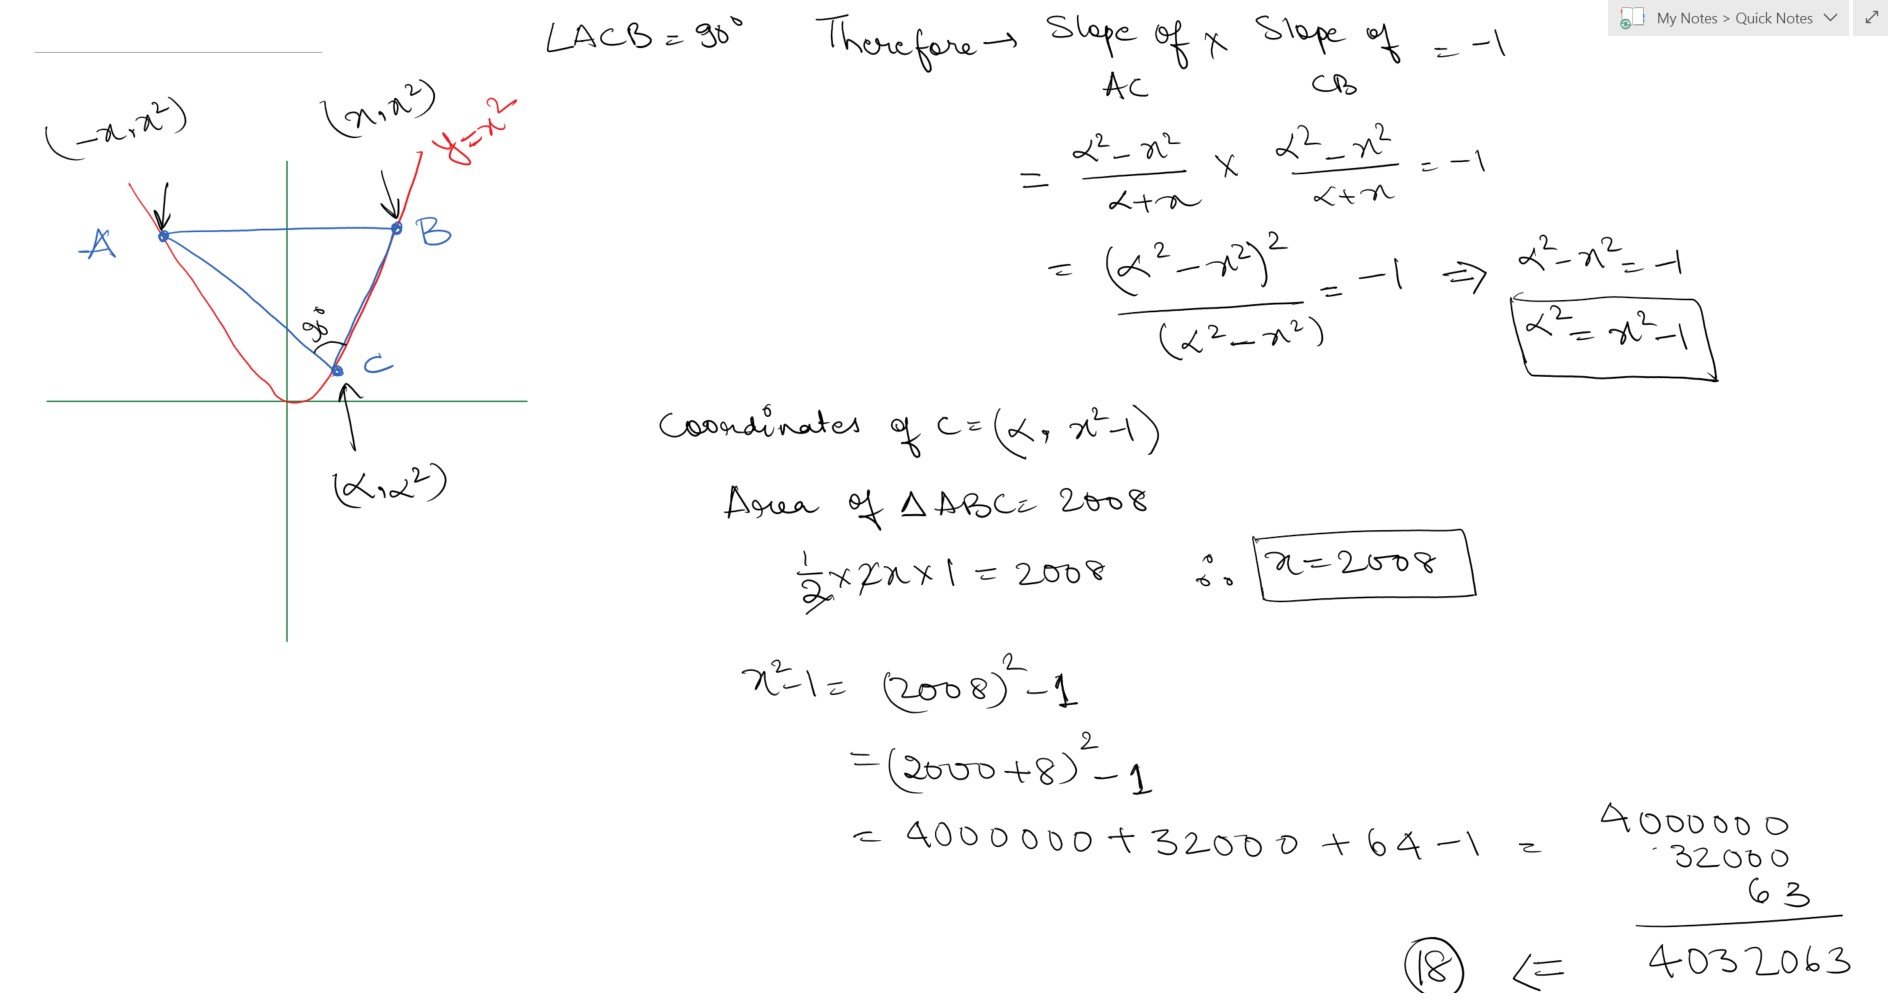 My Notes > Quick Notes
∠ACB = 90° Therefore → Slope of AC × Slope of CB = -1
(-x, x²)
(x, x²)
y=x²
= α²-x²/α+x × α²-x²/α+x = -1
A
B
= (α²-x²)²/(α²-x²) = -1 ⇒ α²-x² = -1
α² = x²-1
90°
C
(α, α²)
Coordinates of C = (α, x²-1)
Area of ΔABC = 2008
1/2 × 2x × 1 = 2008 ∴ x = 2008
x²-1 = (2008)² - 1
= (2000+8)² - 1
= 4000000 + 32000 + 64 - 1 =
4000000
32000
63
4032063
18 <=